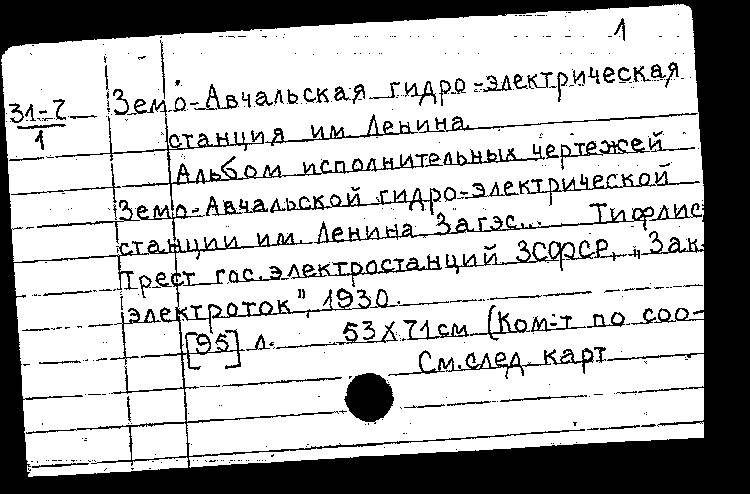 1
Земо-Авчальская гидро-электрическая
31-7
1
станция им Ленина.
Альбом исполнительных чертежей
Земо-Авчальской гидро-электрической
станции им. Ленина Загэс... Тифлис,
Трест гос. электростанций ЗСФСР, „Зак-
электроток", 1930.
[95] л. 53X71 см (Ком-т по соо-
См. след. карт